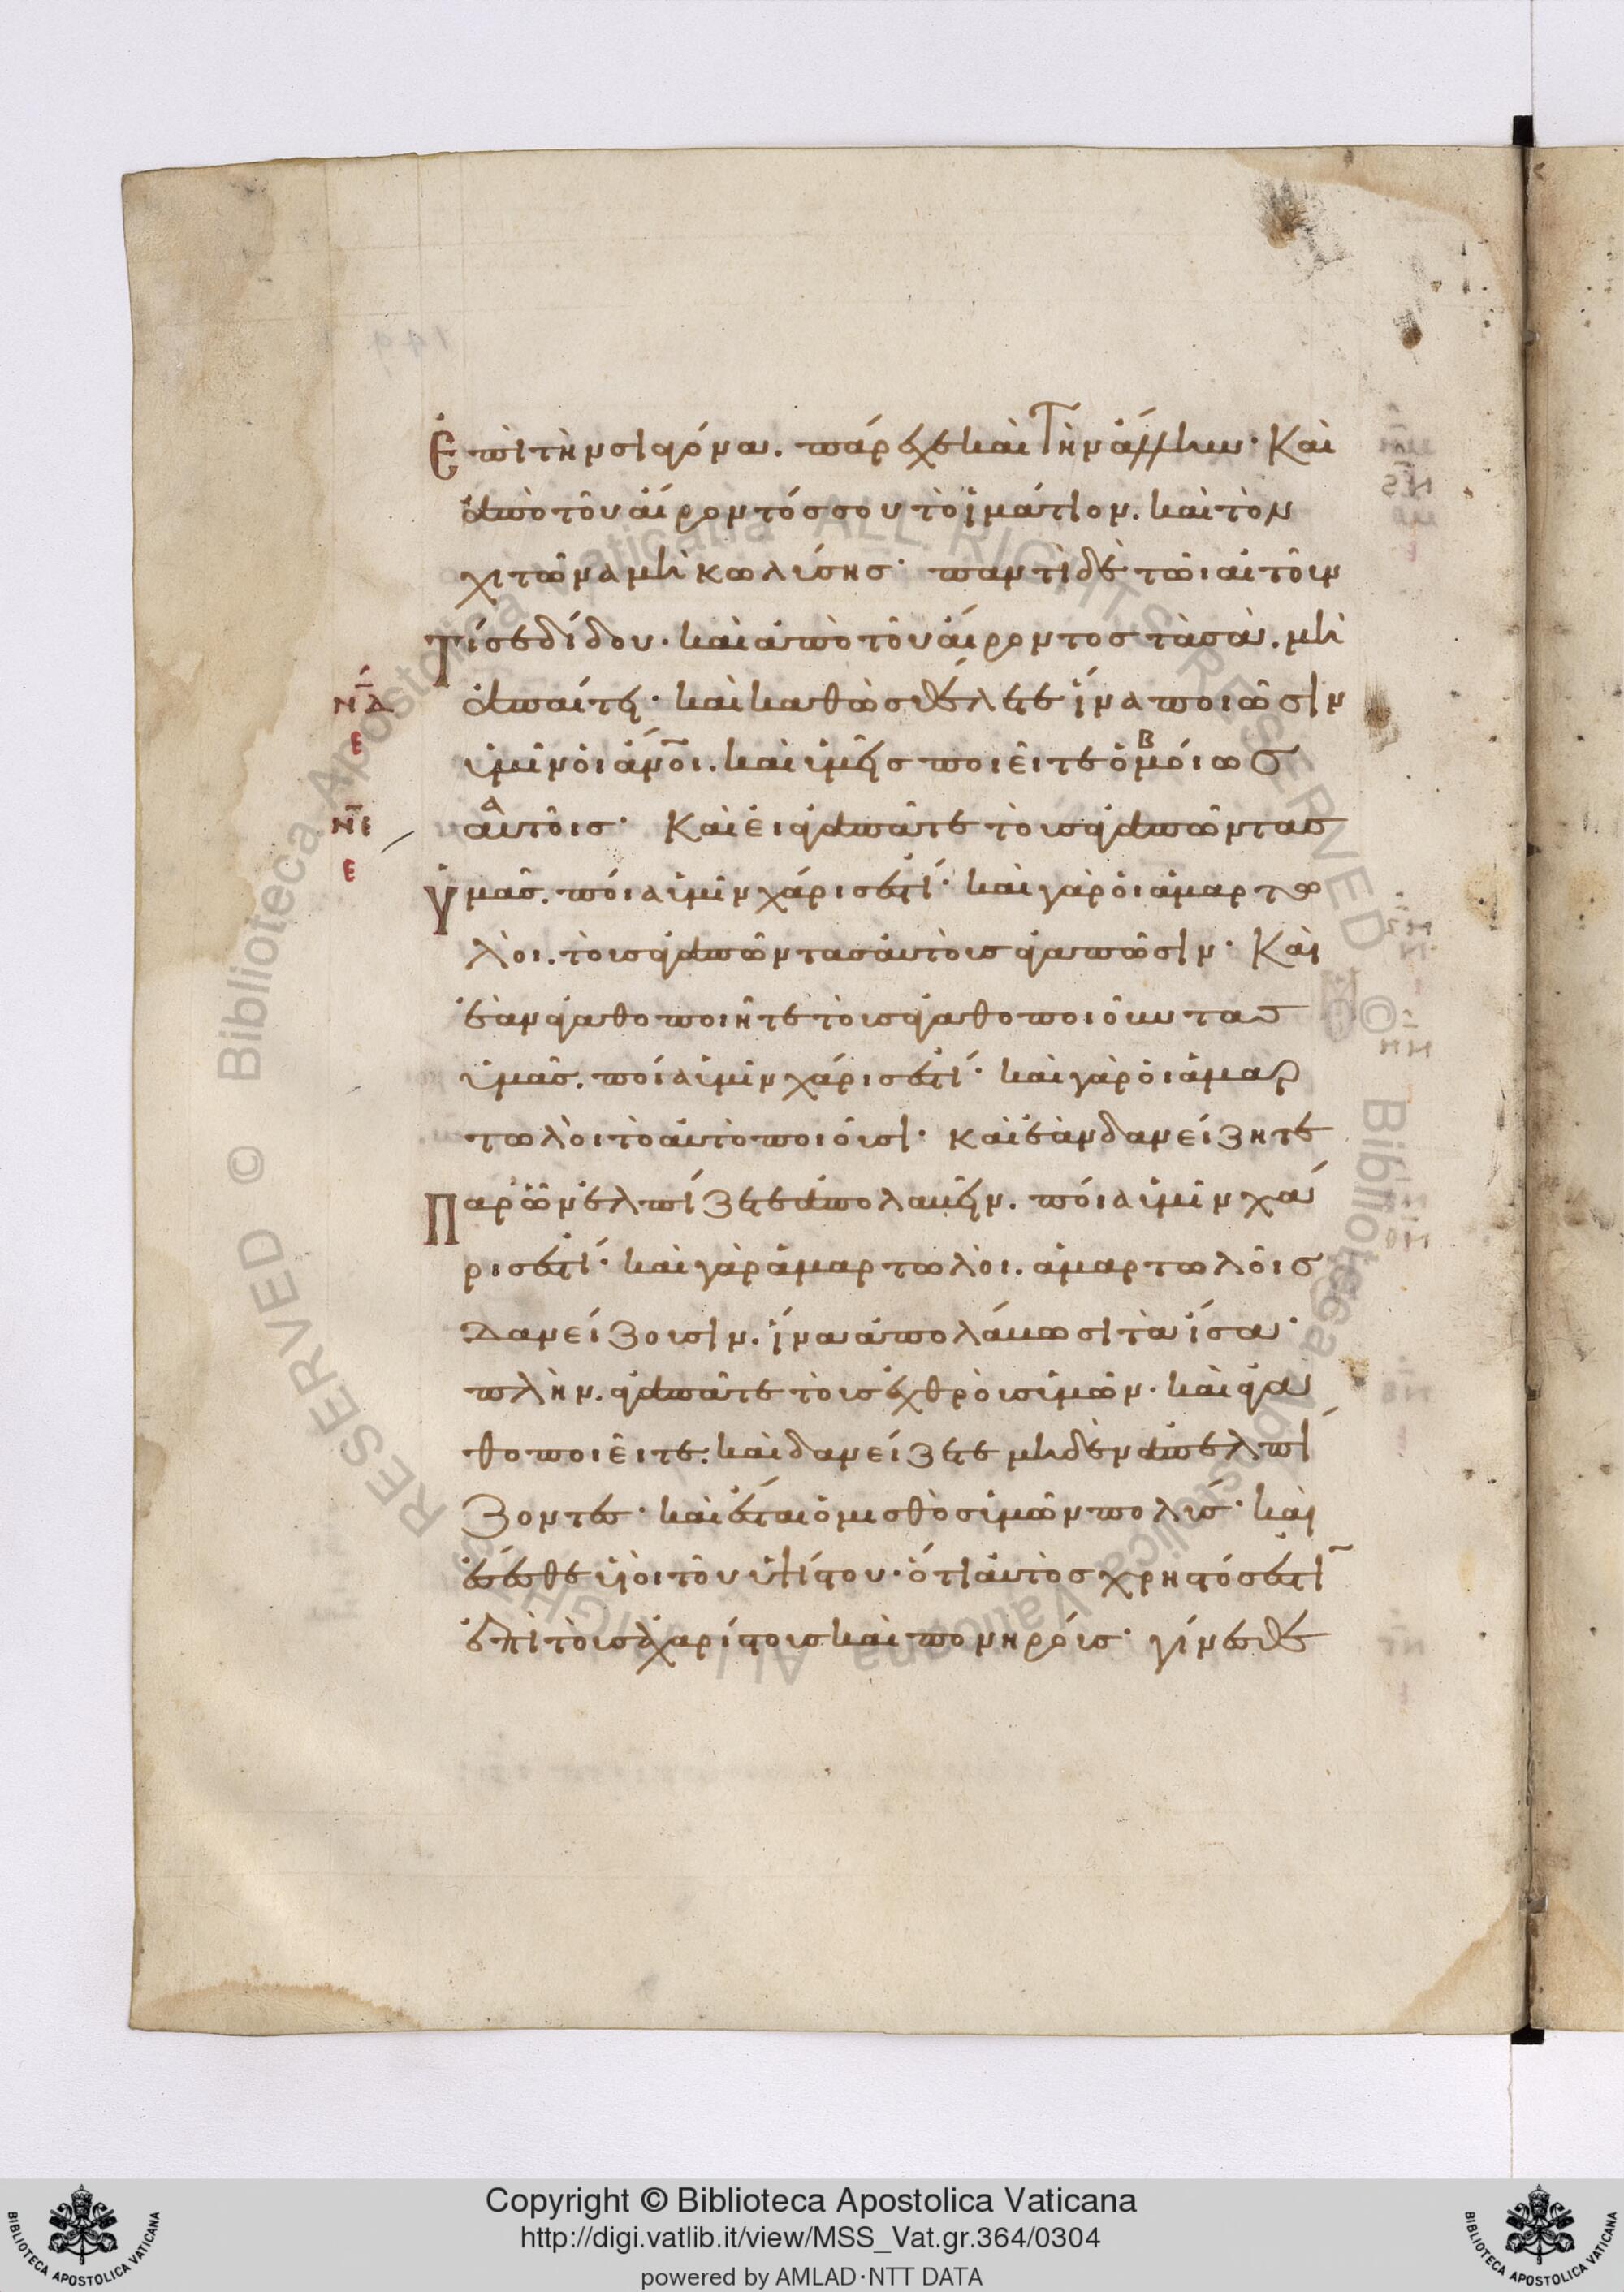 ἐπὶ τὴν σιαγόνα. πάρεχε καὶ τὴν ἄλλην· Καὶ
ἀπὸ τοῦ αἴροντός σου τὸ ἱμάτιον. καὶ τὸν
χιτῶνα μὴ κωλύσης· παντὶ δὲ τῶι αἰτοῦν
τί σε δίδου· καὶ ἀπὸ τοῦ αἴροντος τὰ σὰ. μὴ
ἀπαίτει· καὶ καθὼς θέλετε ἵνα ποιῶσιν
ὑμῖν οἱ ἄνοι. καὶ ὑμεῖς ποιεῖτε ὁμοίως
αὐτοῖς· Καὶ εἰ ἀγαπᾶτε τοὺς ἀγαπῶντας
ὑμᾶς. ποία ὑμῖν χάρις ἐστί· καὶ γὰρ οἱ ἁμαρτω
λοὶ. τοὺς ἀγαπῶντας αὐτοὺς ἀγαπῶσιν· Καὶ
ἐὰν ἀγαθοποιῆτε τοὺς ἀγαθοποιοῦντας
ὑμᾶς. ποία ὑμῖν χάρις ἐστί· καὶ γὰρ οἱ ἁμαρ
τωλοὶ τὸ αὐτὸ ποιοῦσι· καὶ ἐὰν δανείζητε
παρ' ὧν ἐλπίζετε ἀπολαβεῖν. ποία ὑμῖν χά
ρις ἐστί· καὶ γὰρ ἁμαρτωλοὶ. ἁμαρτωλοῖς
δανείζουσιν. ἵνα ἀπολάβωσι τὰ ἴσα·
πλὴν. ἀγαπᾶτε τοὺς ἐχθροὺς ὑμῶν· καὶ ἀγα
θοποιεῖτε. καὶ δανείζετε μηδὲν ἀπελπί
ζοντες· καὶ ἔσται ὁ μισθὸς ὑμῶν πολύς· καὶ
ἔσεσθε υἱοὶ τοῦ ὑψίστου· ὅτι αὐτὸς χρηστός ἐστῖ
ἐπὶ τοὺς ἀχαρίστους καὶ πονηρούς· γίνεσθε
ΝΔ
Ε
ΝΕ
Ε
Copyright © Biblioteca Apostolica Vaticana
http://digi.vatlib.it/view/MSS_Vat.gr.364/0304
powered by AMLAD·NTT DATA
BIBLIOTECA APOSTOLICA VATICANA
BIBLIOTECA APOSTOLICA VATICANA
© Biblioteca Apostolica Vaticana ALL RIGHTS RESERVED © Biblioteca Apostolica Vaticana ALL RIGHTS RESERVED